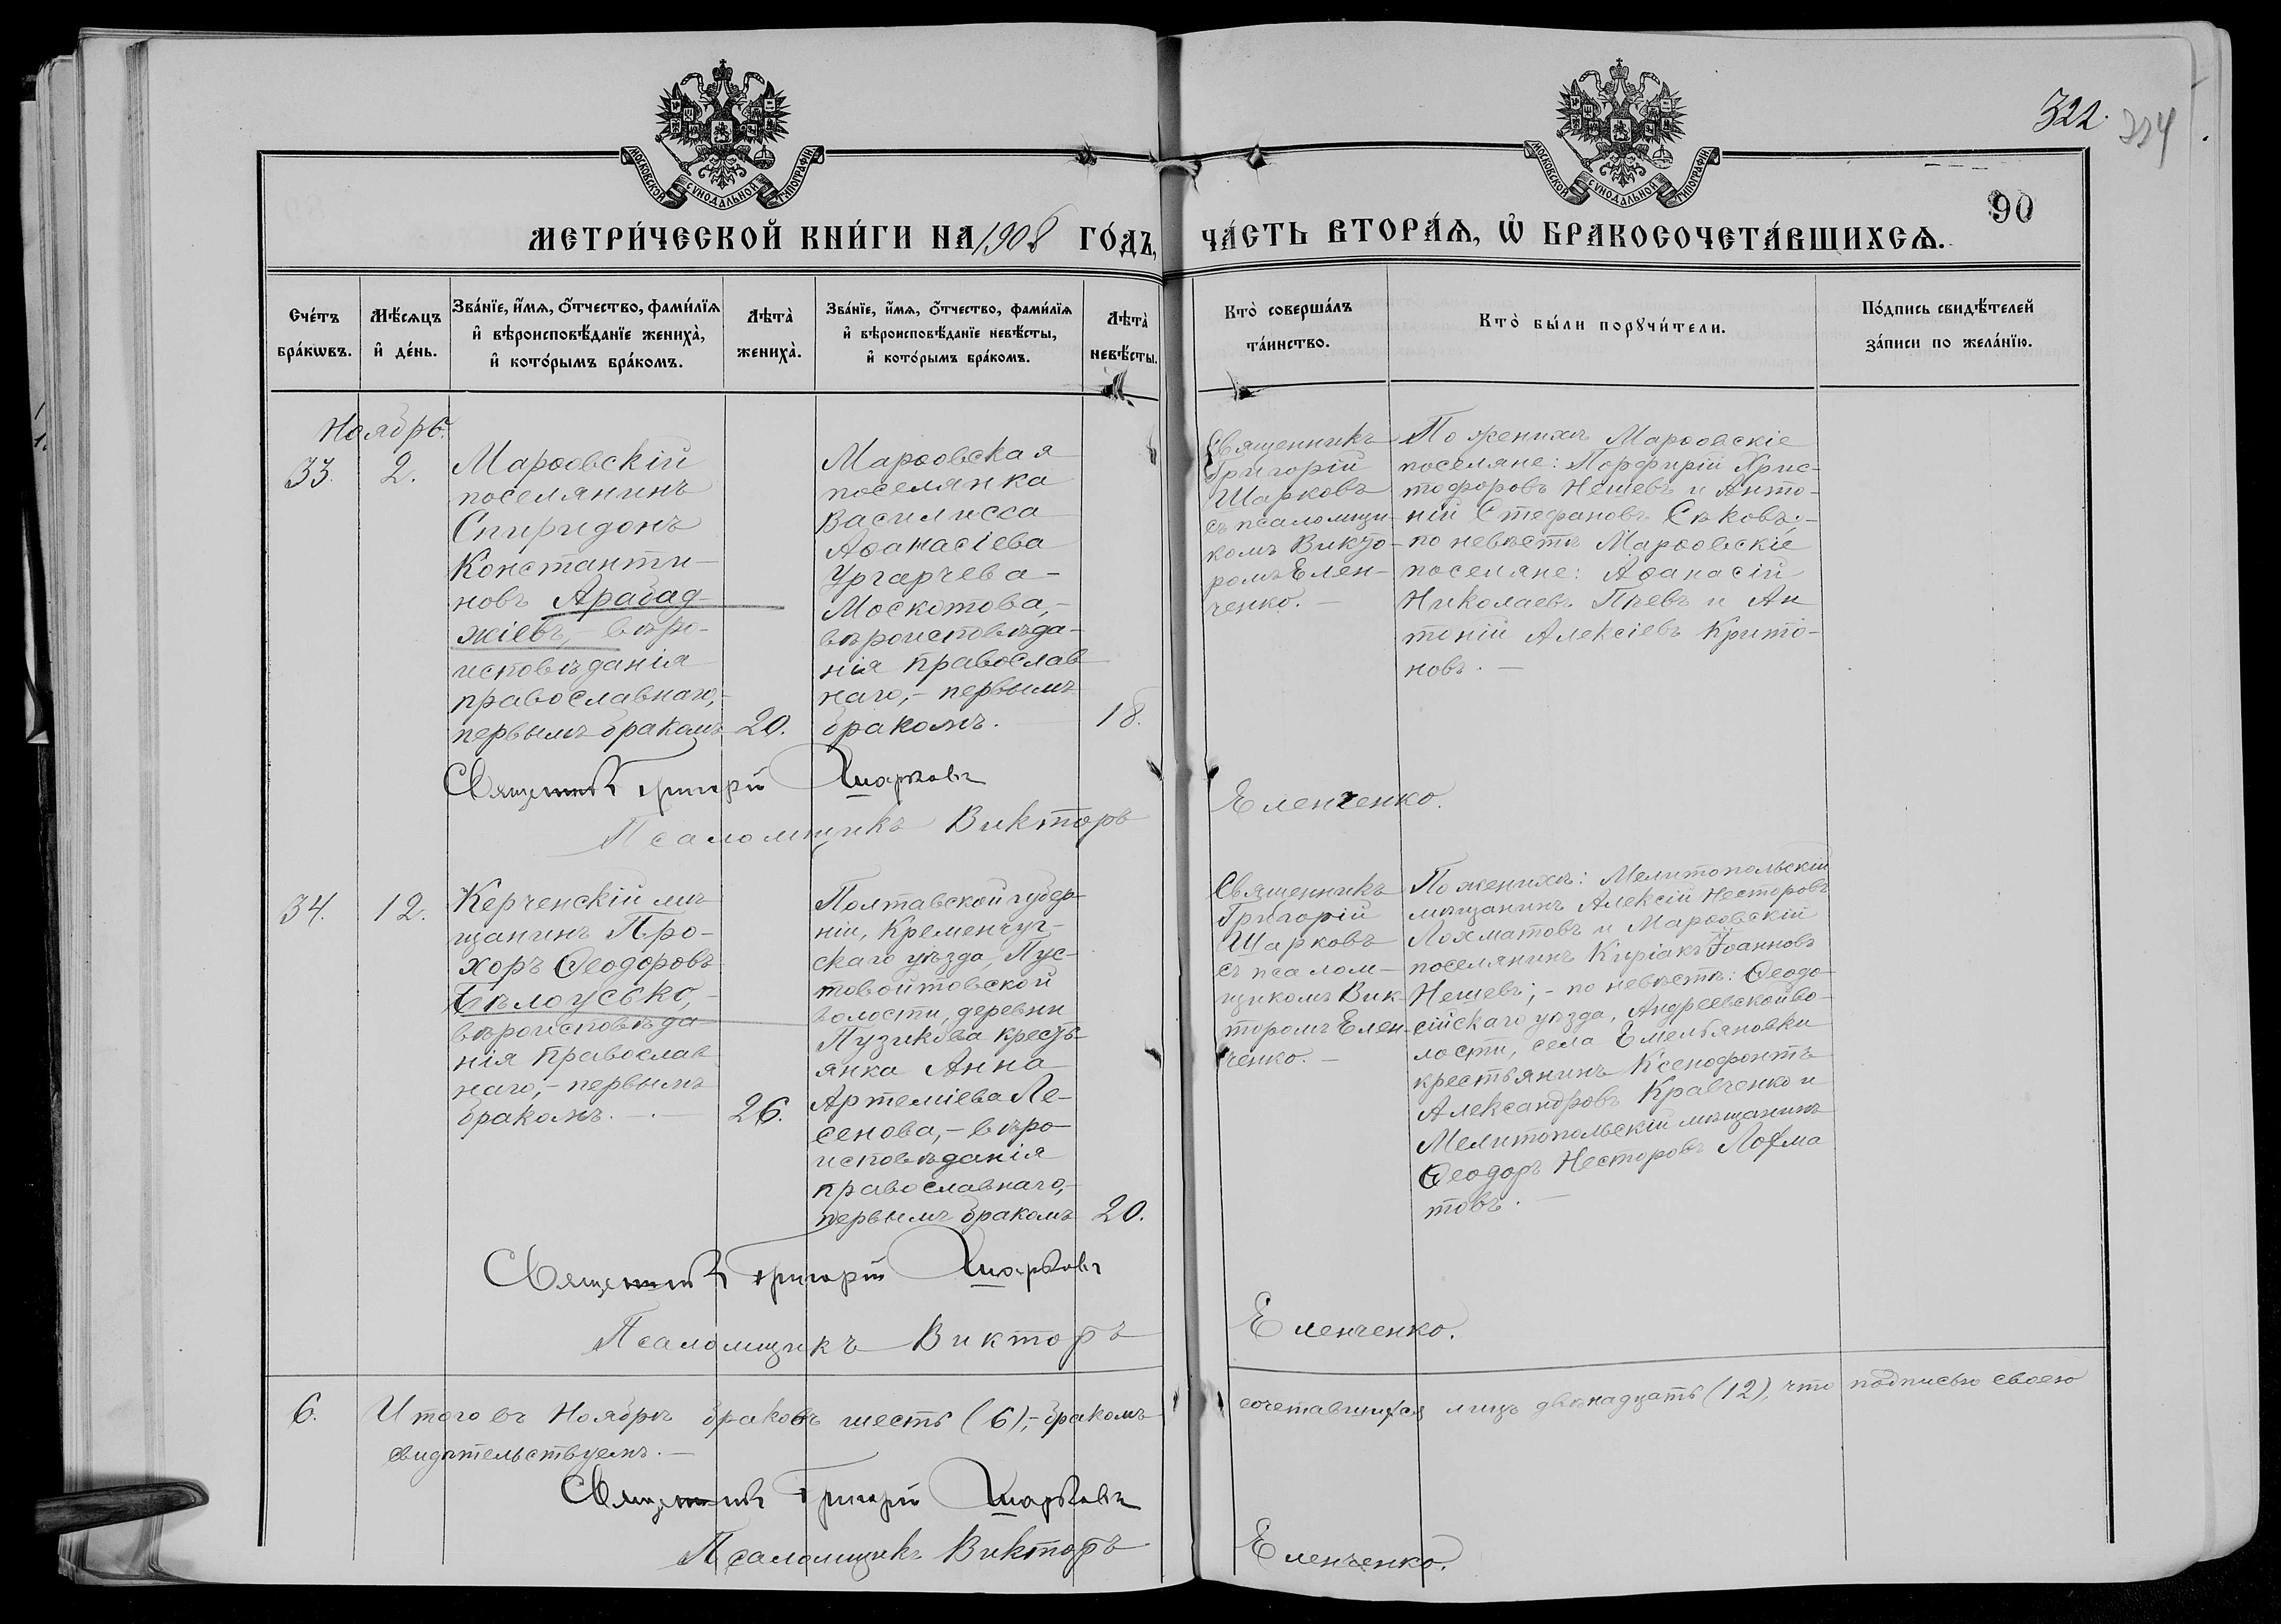 322.
324
МОСКОВСКОЙ СѴНОДАЛЬНОЙ ТИПОГРАФІИ
МОСКОВСКОЙ СѴНОДАЛЬНОЙ ТИПОГРАФІИ
90
МЕТРИ́ЧЕСКОЙ КНИ́ГИ НА 1908 ГО́ДЪ, ЧА́СТЬ ВТОРА́Ѧ, Ѡ҆ БРАКОСОЧЕТА́ВШИХСѦ.
Сче́тъ
бра́кѡвъ.
Мѣ́сѧцъ
и҆ де́нь.
Зва́нїе, и҆́мѧ, ѻ҆́тчество, фами́лїѧ
и҆ вѣроисповѣ́данїе жениха̀,
и҆ кото́рымъ бра́комъ.
Лѣта̀
жениха̀.
Зва́нїе, и҆́мѧ, ѻ҆́тчество, фами́лїѧ
и҆ вѣроисповѣ́данїе невѣ́сты,
и҆ кото́рымъ бра́комъ.
Лѣта̀
невѣ́сты.
Кто̀ соверша́лъ
та́инство.
Кто̀ бы́ли порꙋчи́тели.
По́дпись свидѣ́телей
за́писи по жела́нїю.
Ноябрь.
33.
2.
Марѳовскій
поселянинъ
Спиридонъ
Константи-
новъ Арабад-
жіевъ,- вѣро-
исповѣданія
православнаго,-
первымъ бракомъ
20.
Марѳовская
поселянка
Василисса
Аѳанасіева
Ургарчева-
Москотова,-
вѣроисповѣда-
нія православ
наго,- первымъ
бракомъ.
18.
Священникъ
Григорій
Шарковъ
съ псаломщи-
комъ Викто-
ромъ Елен-
ченко.-
По женихѣ Марѳовскіе
поселяне: Порфирій Хрис-
тофоровъ Нешевъ и Анто-
ній Стефановъ Сѣковъ;-
по невѣстѣ Марѳовскіе
поселяне: Аѳанасій
Николаевъ Пѣевъ и Ан
тоній Алексіевъ Крито-
новъ.-
Священникъ Григорій Шарковъ
Псаломщикъ Викторъ Еленченко.
34.
12.
Керченскій мѣ-
щанинъ Про-
хоръ Ѳеодоровъ
Бѣлоусько,-
вѣроисповѣда-
нія православ
наго,- первымъ
бракомъ.-.-
26.
Полтавской губер-
ніи, Кременчуг-
скаго уѣзда, Пус-
товойтовской
волости, деревни
Пузикова кресть-
янка Анна
Артеміева Ле-
сенова,- вѣро-
исповѣданія
православнаго,-
первымъ бракомъ
20.
Священникъ
Григорій
Шарковъ
съ псалом-
щикомъ Вик-
торомъ Елен-
ченко.-
По женихѣ: Мелитопольскій
мѣщанинъ Алексій Несторовъ
Лохматовъ и Марѳовскій
поселянинъ Киріакъ Іоанновъ
Нешевъ;- по невѣстѣ: Ѳеодо-
сійскаго уѣзда, Андреевской во-
лости, села Емельяновки
крестьянинъ Ксенофонтъ
Александровъ Кравченко и
Мелитопольскій мѣщанинъ
Ѳеодоръ Несторовъ Лохма
товъ.-
Священникъ Григорій Шарковъ
Псаломщикъ Викторъ Еленченко.
6.
Итого въ Ноябрѣ браковъ шесть (6),- бракомъ сочетавшихся лицъ двѣнадцать (12), что подписью своею
свидѣтельствуемъ.-
Священникъ Григорій Шарковъ
Псаломщикъ Викторъ Еленченко.